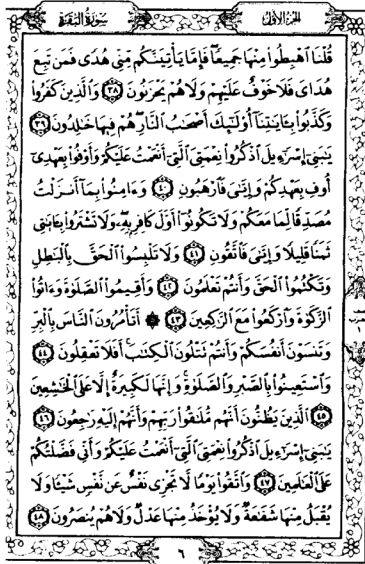 سُورَةُ البَقَرَةِ
الجزء الأول
قُلْنَا ٱهْبِطُوا۟ مِنْهَا جَمِيعًا ۖ فَإِمَّا يَأْتِيَنَّكُم مِّنِّى هُدًى فَمَن تَبِعَ
هُدَاىَ فَلَا خَوْفٌ عَلَيْهِمْ وَلَا هُمْ يَحْزَنُونَ ٣٨ وَٱلَّذِينَ كَفَرُوا۟
وَكَذَّبُوا۟ بِـَٔايَٰتِنَآ أُو۟لَٰٓئِكَ أَصْحَٰبُ ٱلنَّارِ ۖ هُمْ فِيهَا خَٰلِدُونَ ٣٩
يَٰبَنِىٓ إِسْرَٰٓءِيلَ ٱذْكُرُوا۟ نِعْمَتِىَ ٱلَّتِىٓ أَنْعَمْتُ عَلَيْكُمْ وَأَوْفُوا۟ بِعَهْدِىٓ
أُوفِ بِعَهْدِكُمْ وَإِيَّٰىَ فَٱرْهَبُونِ ٤٠ وَءَامِنُوا۟ بِمَآ أَنزَلْتُ
مُصَدِّقًا لِّمَا مَعَكُمْ وَلَا تَكُونُوٓا۟ أَوَّلَ كَافِرٍۭ بِهِۦ ۖ وَلَا تَشْتَرُوا۟ بِـَٔايَٰتِى
ثَمَنًا قَلِيلًا وَإِيَّٰىَ فَٱتَّقُونِ ٤١ وَلَا تَلْبِسُوا۟ ٱلْحَقَّ بِٱلْبَٰطِلِ
وَتَكْتُمُوا۟ ٱلْحَقَّ وَأَنتُمْ تَعْلَمُونَ ٤٢ وَأَقِيمُوا۟ ٱلصَّلَوٰةَ وَءَاتُوا۟
ٱلزَّكَوٰةَ وَٱرْكَعُوا۟ مَعَ ٱلرَّٰكِعِينَ ٤٣ ۞ أَتَأْمُرُونَ ٱلنَّاسَ بِٱلْبِرِّ
وَتَنسَوْنَ أَنفُسَكُمْ وَأَنتُمْ تَتْلُونَ ٱلْكِتَٰبَ ۚ أَفَلَا تَعْقِلُونَ ٤٤
وَٱسْتَعِينُوا۟ بِٱلصَّبْرِ وَٱلصَّلَوٰةِ ۚ وَإِنَّهَا لَكَبِيرَةٌ إِلَّا عَلَى ٱلْخَٰشِعِينَ
٤٥ ٱلَّذِينَ يَظُنُّونَ أَنَّهُم مُّلَٰقُوا۟ رَبِّهِمْ وَأَنَّهُمْ إِلَيْهِ رَٰجِعُونَ ٤٦
يَٰبَنِىٓ إِسْرَٰٓءِيلَ ٱذْكُرُوا۟ نِعْمَتِىَ ٱلَّتِىٓ أَنْعَمْتُ عَلَيْكُمْ وَأَنِّى فَضَّلْتُكُمْ
عَلَى ٱلْعَٰلَمِينَ ٤٧ وَٱتَّقُوا۟ يَوْمًا لَّا تَجْزِى نَفْسٌ عَن نَّفْسٍ شَيْـًٔا وَلَا
يُقْبَلُ مِنْهَا شَفَٰعَةٌ وَلَا يُؤْخَذُ مِنْهَا عَدْلٌ وَلَا هُمْ يُنصَرُونَ ٤٨
٦